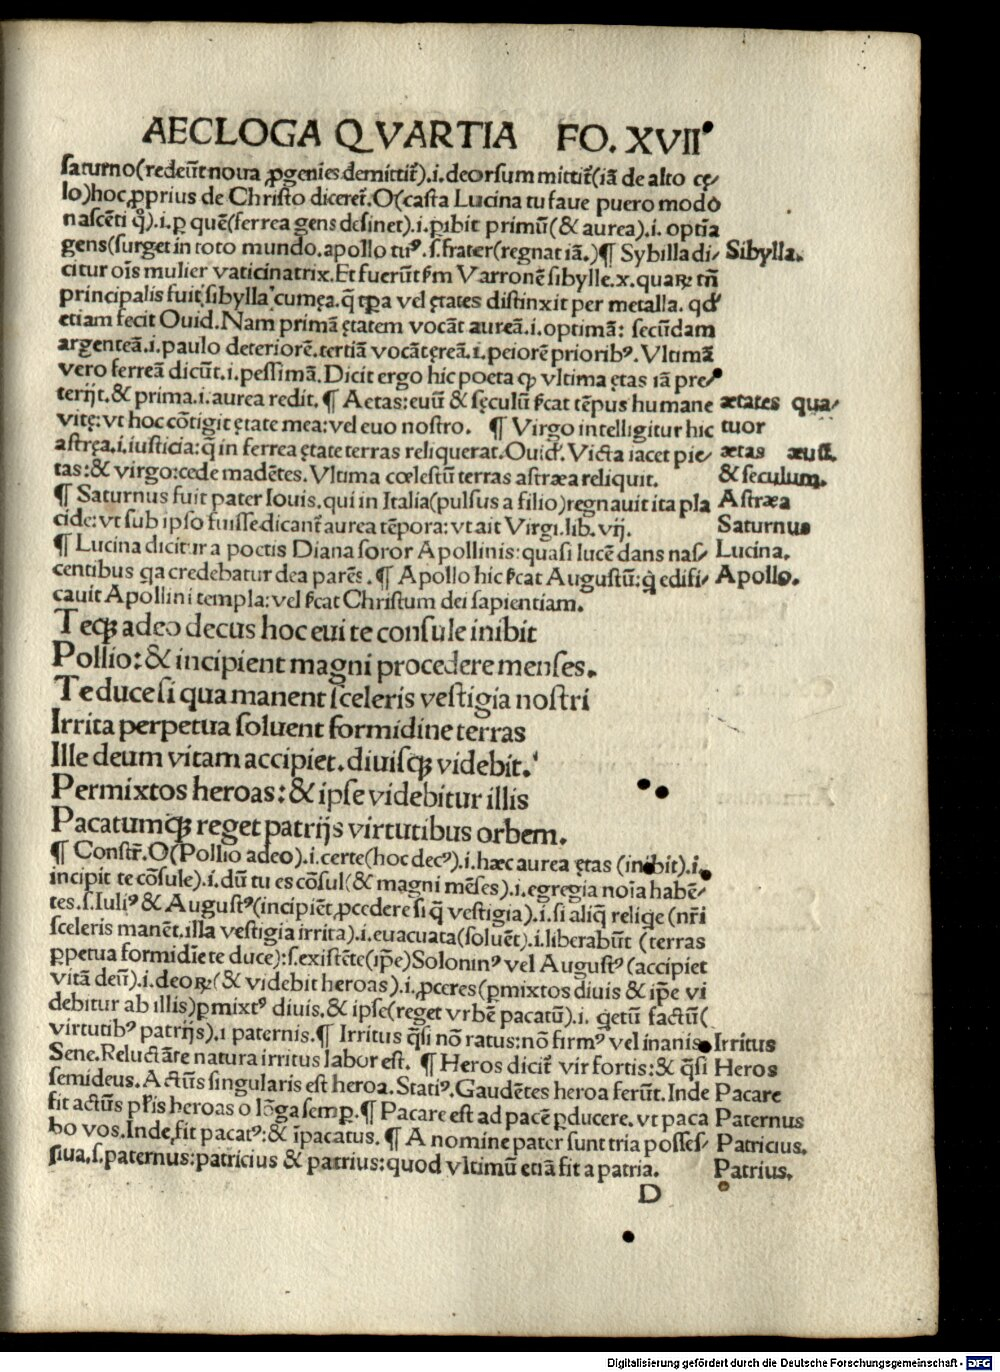 AECLOGA QVARTIA FO. XVII
saturno(redeūt noua ꝓgenies demittit̄).i.deorsum mittit̄(iā de alto cę⸗
lo)hoc ꝓprius de Christo diceret̄.O(casta Lucina tu faue puero modo
nascēti q̄).i.ꝑ quē(ferrea gens desinet).i.ꝑibit primū(& aurea).i. optīa
gens(surget in toto mundo.apollo tuꝰ.s.frater(regnat iā.)¶ Sybilla di⸗ Sibylla.
citur oīs mulier vaticinatrix.Et fuerūt ẜm Varronē sibylle.x.quaꝝ tn̄
principalis fuit sibylla cumęa.q̄ tꝑa vel ętates distinxit per metalla. qđ
etiam fecit Ouid.Nam primā ętatem vocāt aureā.i.optimā: secūdam
argenteā.i.paulo deteriorē.tertiā vocāt ęreā.i.peiorē prioribꝰ.Vltimā
vero ferreā dicūt.i.pessimā.Dicit ergo hic poeta ꝙ vltima ętas iā pre⸗
terijt.& prima.i.aurea redit.¶ Aetas:euū & sęculū ẜcat tēpus humane ætates qua⸗
vitę:vt hoc cōtigit ętate mea:vel euo nostro. ¶ Virgo intelligitur hic tuor
astręa.i.iusticia:q̄ in ferrea ętate terras reliquerat.Ouid. Victa iacet pie⸗ ætas æuū.
tas:& virgo:cede madētes.Vltima cœlestū terras astræa reliquit. & seculum.
¶ Saturnus fuit pater Iouis.qui in Italia(pulsus a filio)regnauit ita pla Astræa
cide:vt sub ipso fuisse dicant̄ aurea tēpora:vt ait Virgi.lib.vij. Saturnus
¶ Lucina dicitur a poetis Diana soror Apollinis:quasi lucē dans nas⸗ Lucina.
centibus qa credebatur dea parēs.¶ Apollo hic ẜcat Augustū:q̄ edifi⸗ Apollo.
cauit Apollini templa:vel ẜcat Christum dei sapientiam.
Teqꝫ adeo decus hoc eui te consule inibit
Pollio:& incipient magni procedere menses.
Te duce si qua manent sceleris vestigia nostri
Irrita perpetua soluent formidine terras
Ille deum vitam accipiet.diuisqꝫ videbit.
Permixtos heroas:& ipse videbitur illis
Pacatumqꝫ reget patrijs virtutibus orbem.
¶ Constr̄.O(Pollio adeo).i.certe(hoc decꝰ).i.hæc aurea ętas (inibit).i.
incipit te cōsule).i.dū tu es cōsul(& magni mēses).i.egregia noīa habē⸗
tes.s.Iuliꝰ & Augustꝰ(incipiēt ꝓcedere si q̄ vestigia).i.si aliq̄ reliqe (nr̄i
sceleris manēt.illa vestigia irrita).i.euacuata(soluēt).i.liberabūt (terras
ꝑpetua formidīe te duce):s.existēte(ip̄e)Soloninꝰ vel Augustꝰ (accipiet
vitā deū).i.deoꝝ(& videbit heroas).i.ꝓceres(ꝑmixtos diuis & ip̄e vi
debitur ab illis)ꝑmixtꝰ diuis.& ipse(reget vrbē pacatū).i. qetū factū(
virtutibꝰ patrijs).i paternis.¶ Irritus q̄si nō ratus:nō firmꝰ vel inanis Irritus
Sene.Reluctāte natura irritus labor est. ¶ Heros dicit̄ vir fortis:& q̄si Heros
semideus.Actūs singularis est heroa.Statiꝰ.Gaudētes heroa ferūt.Inde Pacare
fit actūs pl̄is heroas o lōga semꝑ.¶ Pacare est ad pacē ꝑducere.vt paca Paternus
bo vos.Inde fit pacatꝰ:& īpacatus. ¶ A nomine pater sunt tria posses⸗ Patricius.
siua.s.paternus:patricius & patrius:quod vltimū etiā fit a patria. Patrius.
D
Digitalisierung gefördert durch die Deutsche Forschungsgemeinschaft - DFG